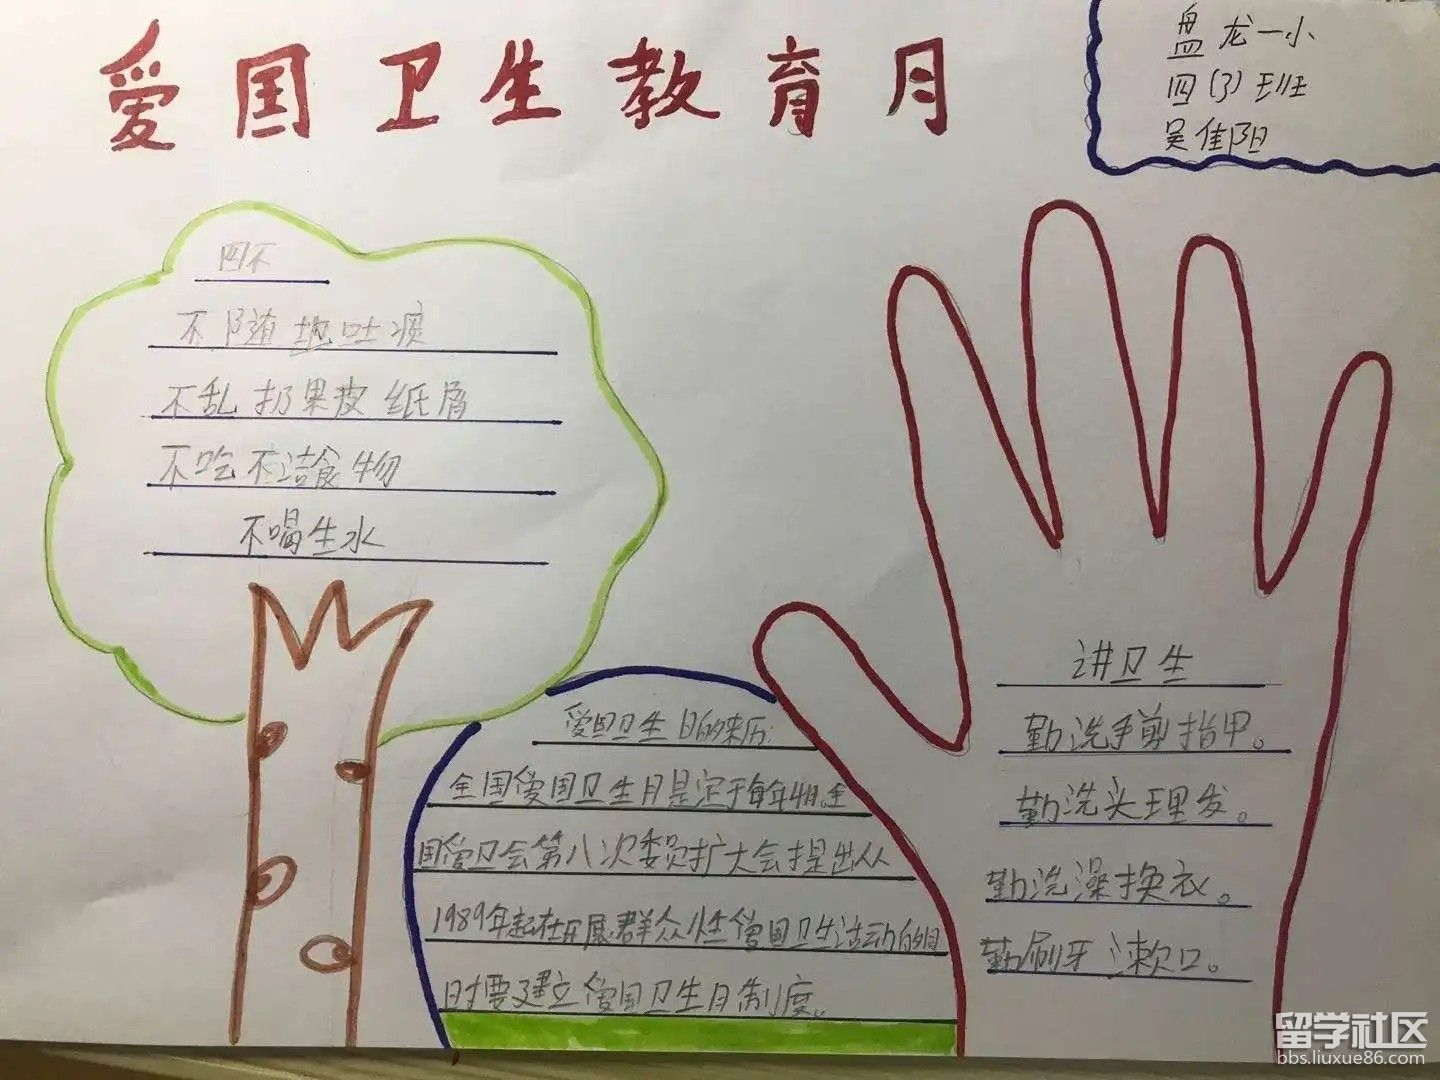 爱国卫生教育月
盘龙一小
四(3)班
吴佳阳
四不
不随地吐痰
不乱扔果皮纸屑
不吃不洁食物
不喝生水
爱国卫生月的来历:
全国爱国卫生月是定于每年4月。全
国爱卫会第八次委员扩大会提出从
1989年起在开展群众性爱国卫生活动的同
时要建立爱国卫生月制度。
讲卫生
勤洗手剪指甲。
勤洗头理发。
勤洗澡换衣。
勤刷牙漱口。
留学社区
bbs.liuxue86.com